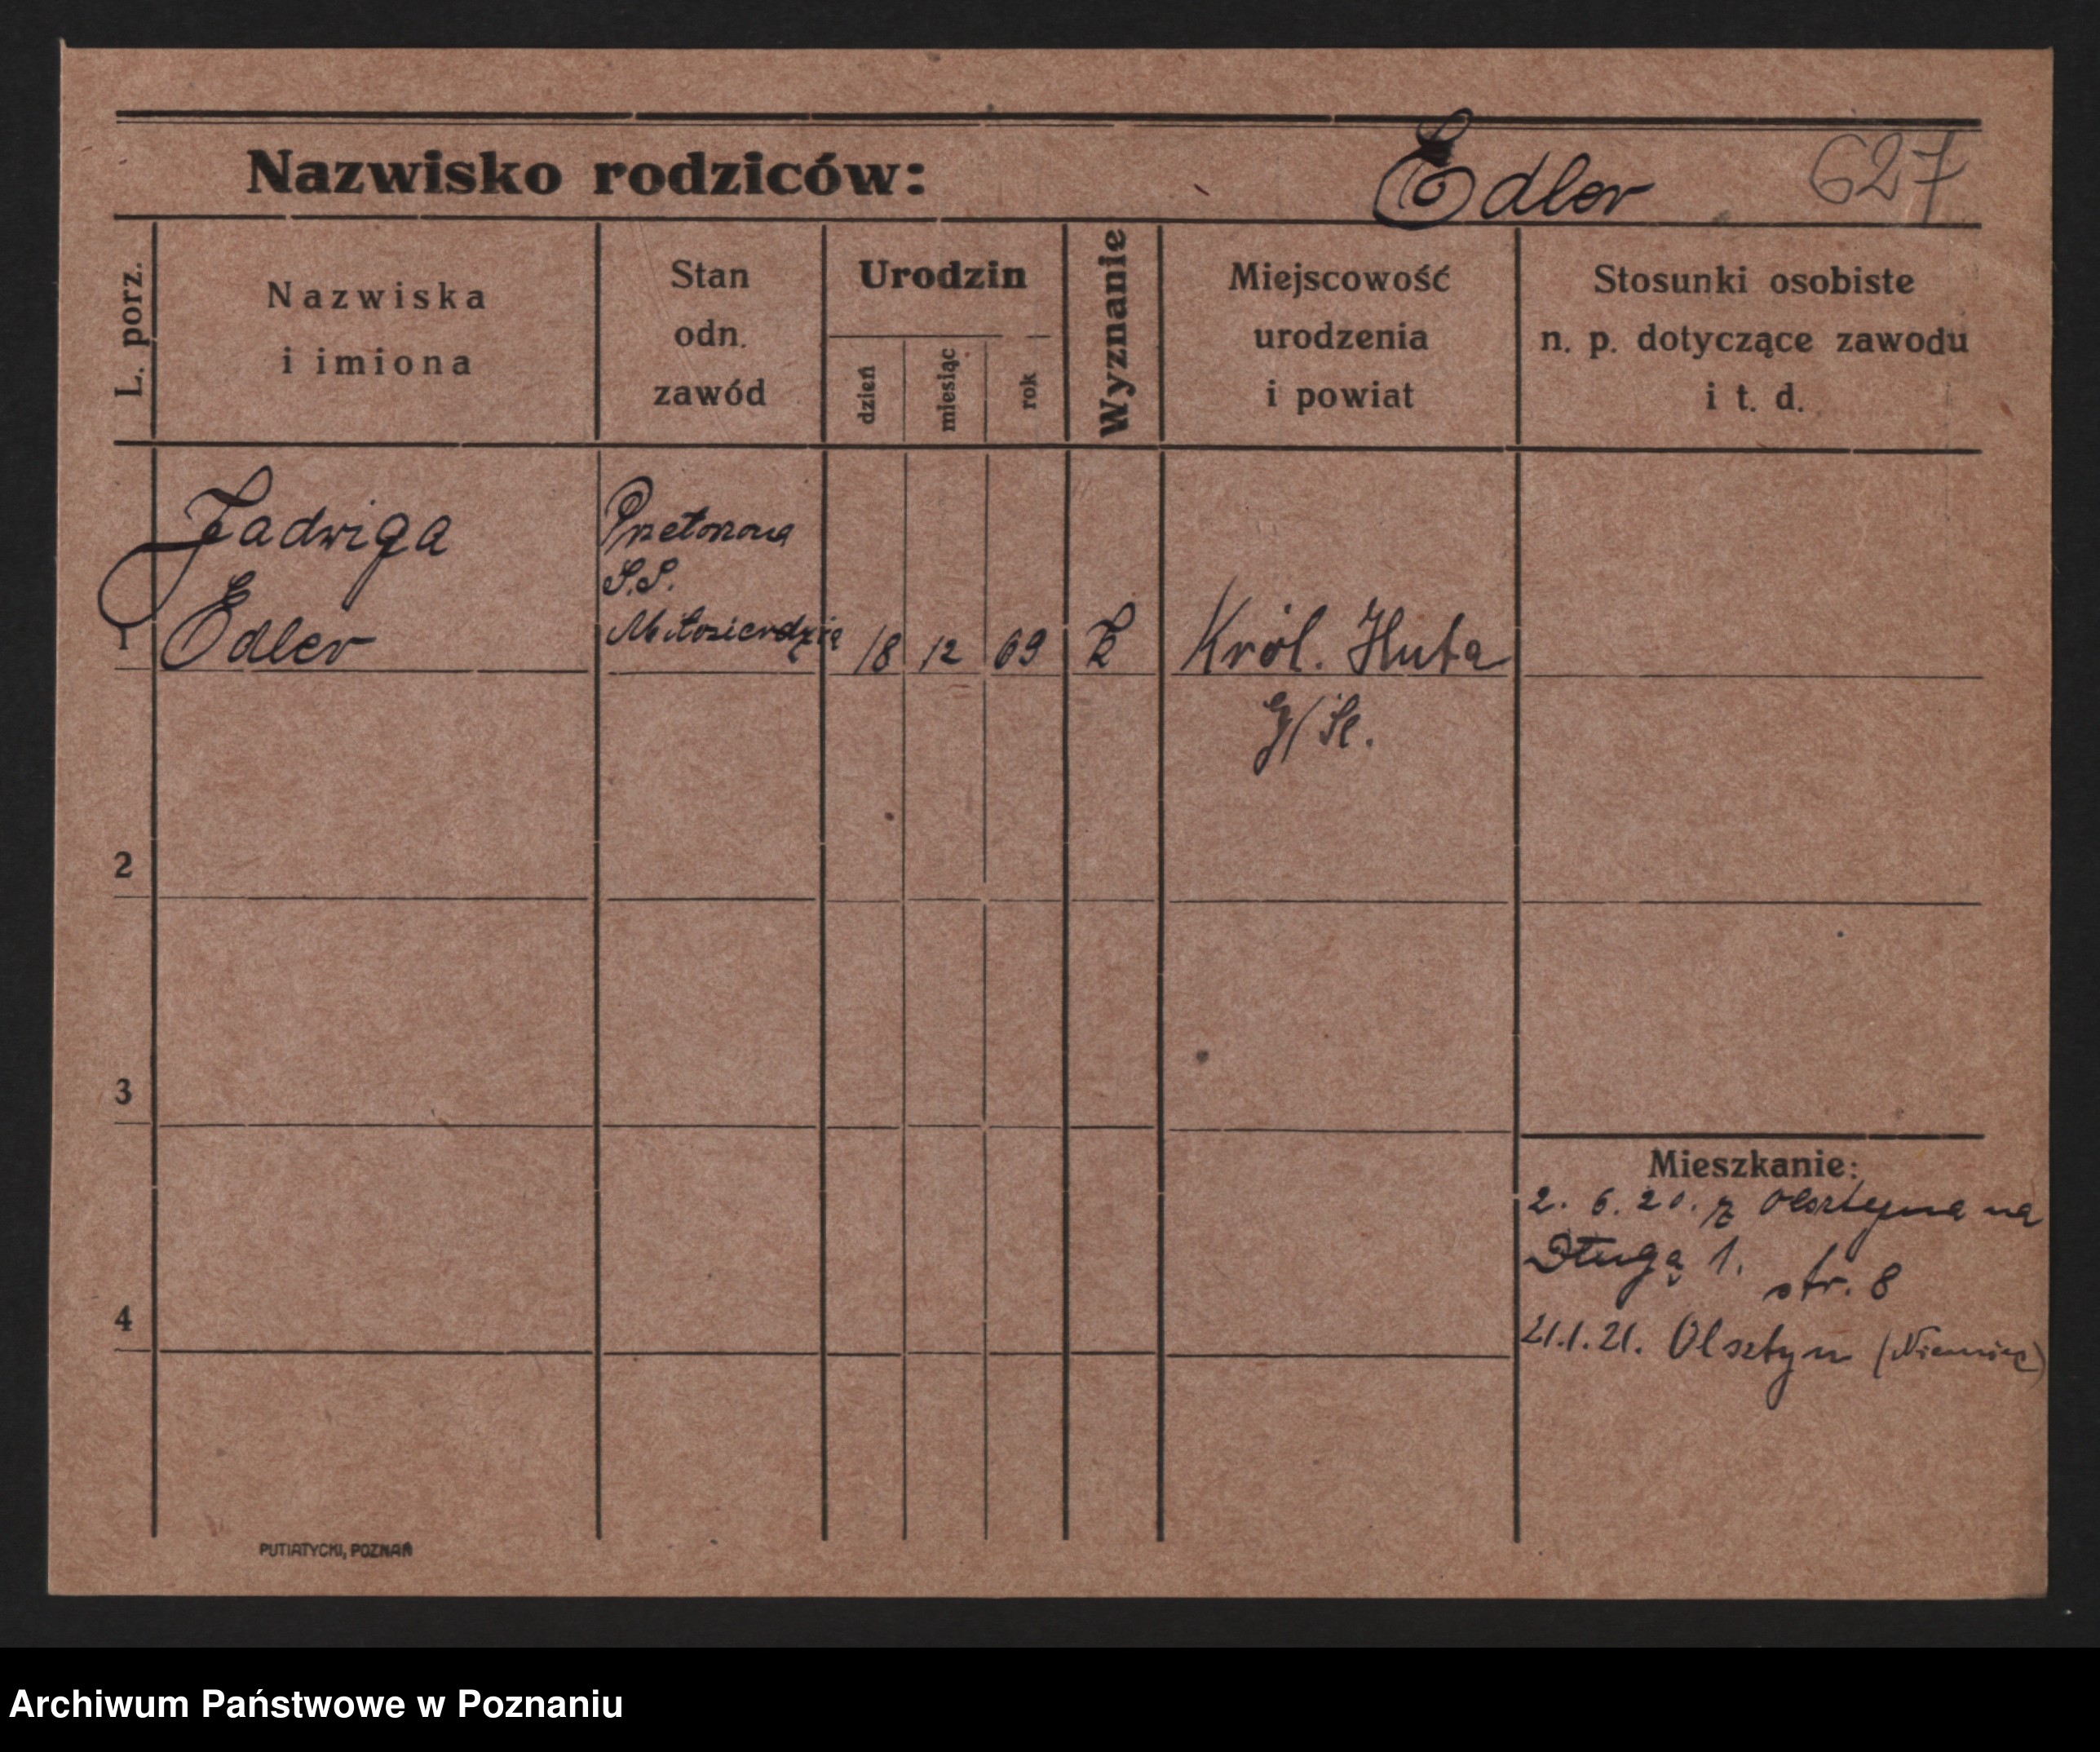 Nazwisko rodziców: Edler 627
L. porz.
Nazwiska
i imiona
Stan
odn.
zawód
Urodzin
dzień
miesiąc
rok
Wyznanie
Miejscowość
urodzenia
i powiat
Stosunki osobiste
n. p. dotyczące zawodu
i t. d.
Jadwiga
Edler
S.S.
Miłosierdzia
1 18 12 69 Król. Huta
G/Śl.
2
3
4
Mieszkanie:
2. 6. 20. z Olsztyna na
Długą 1.
str. 8
21.1.21. Olsztyn (Niemiec)
PUTIATYCKI, POZNAŃ
Archiwum Państwowe w Poznaniu